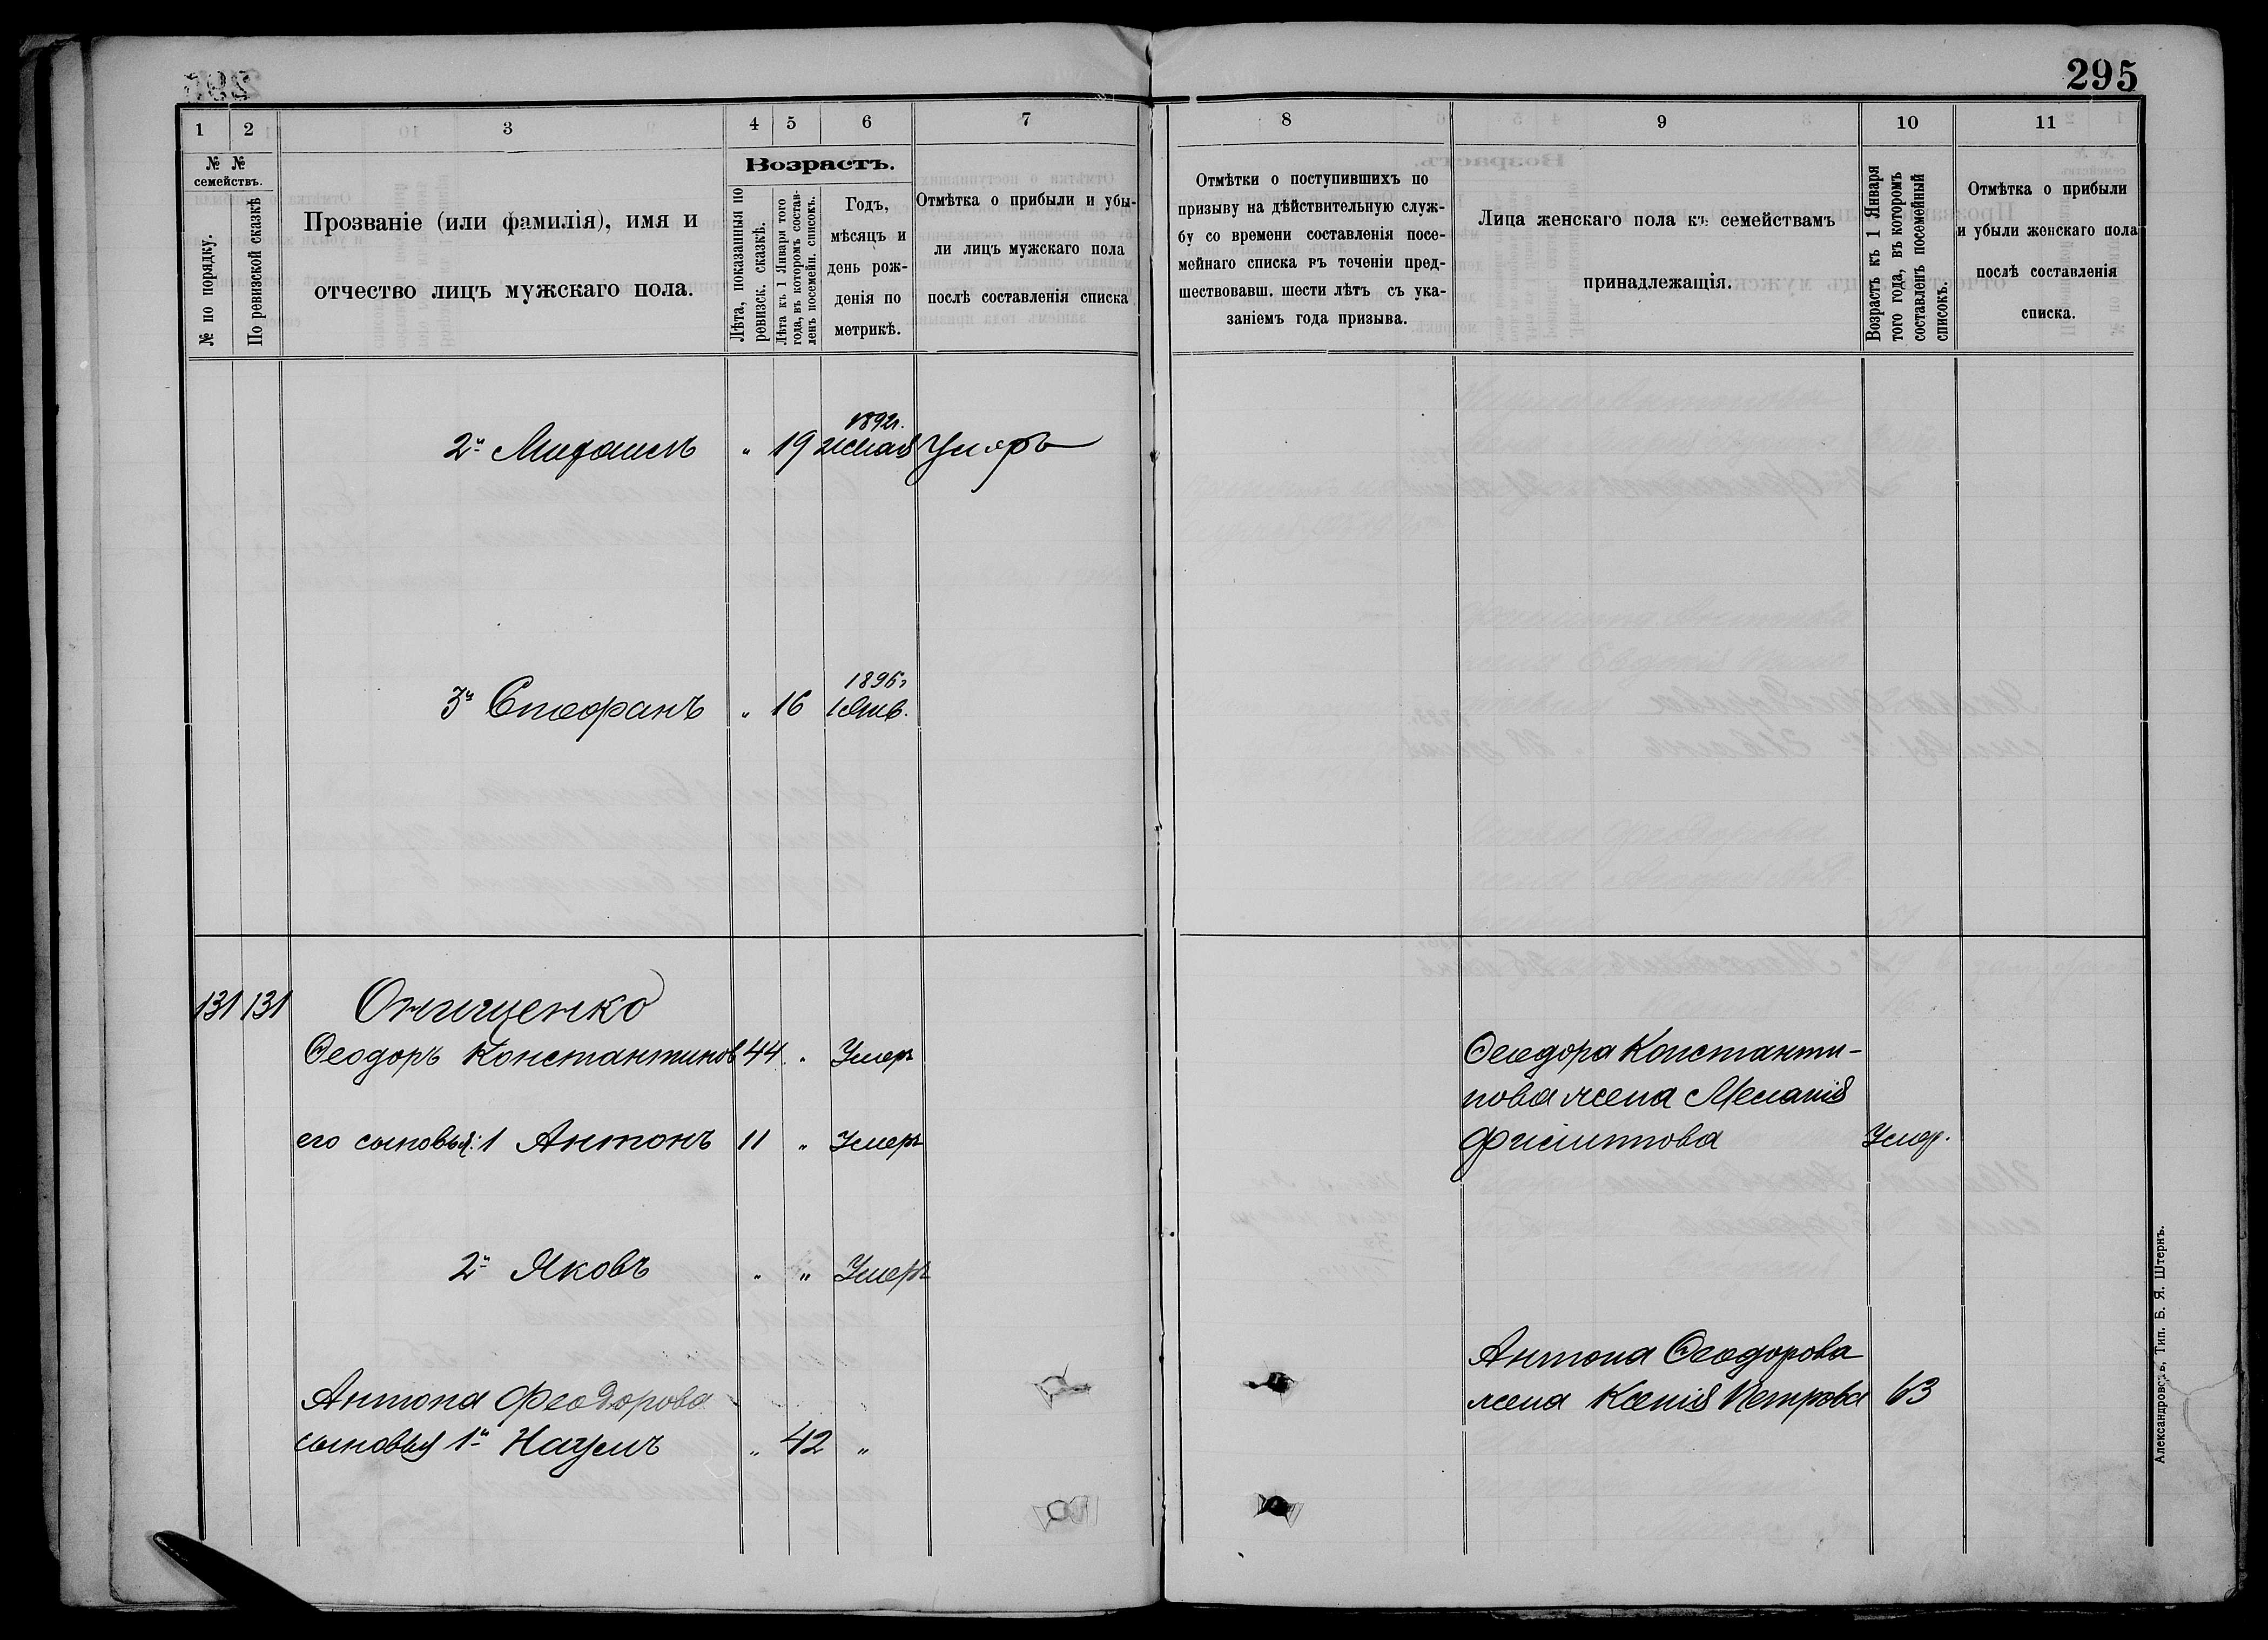 295
1 2 3 4 5 6 7
№ № семействъ.
№ по порядку.
По ревизской сказкѣ
Прозваніе (или фамилія), имя и
отчество лицъ мужскаго пола.
Возрастъ.
Лѣта, показанныя по
ревизск. сказкѣ.
Лѣта къ 1 Января того
года, въ которомъ состав-
ленъ посемейн. списокъ.
Годъ,
мѣсяцъ и
день рож-
денія по
метрикѣ.
Отмѣтка о прибыли и убы-
ли лицъ мужскаго пола
послѣ составленія списка
8 9 10 11
Отмѣтки о поступившихъ по
призыву на дѣйствительную служ-
бу со времени составленія посе-
мейнаго списка въ теченіи пред-
шествовавш. шести лѣтъ съ ука-
заніемъ года призыва.
Лица женскаго пола къ семействамъ
принадлежащія.
Возрастъ къ 1 Января
того года, въ которомъ
составленъ посемейный
списокъ.
Отмѣтка о прибыли
и убыли женскаго пола
послѣ составленія
списка.
1892г.
2й Михаилъ " 19 Мая Умеръ
1896г
3й Стефанъ " 16 1 Янв.
131 131 Онищенко
Ѳеодоръ Константинов 44 " Умеръ
его сыновья: 1 Антонъ 11 " Умеръ
2й Яковъ " " Умеръ
Антона Феодорова
сыновья 1й Наумъ " 42 "
Ѳеодора Константи-
нова жена Меланія
Филиппова Умер.
Антона Ѳеодорова
жена Ксенія Петрова 63
Александровскъ, Тип. Б. Я. Штернъ.